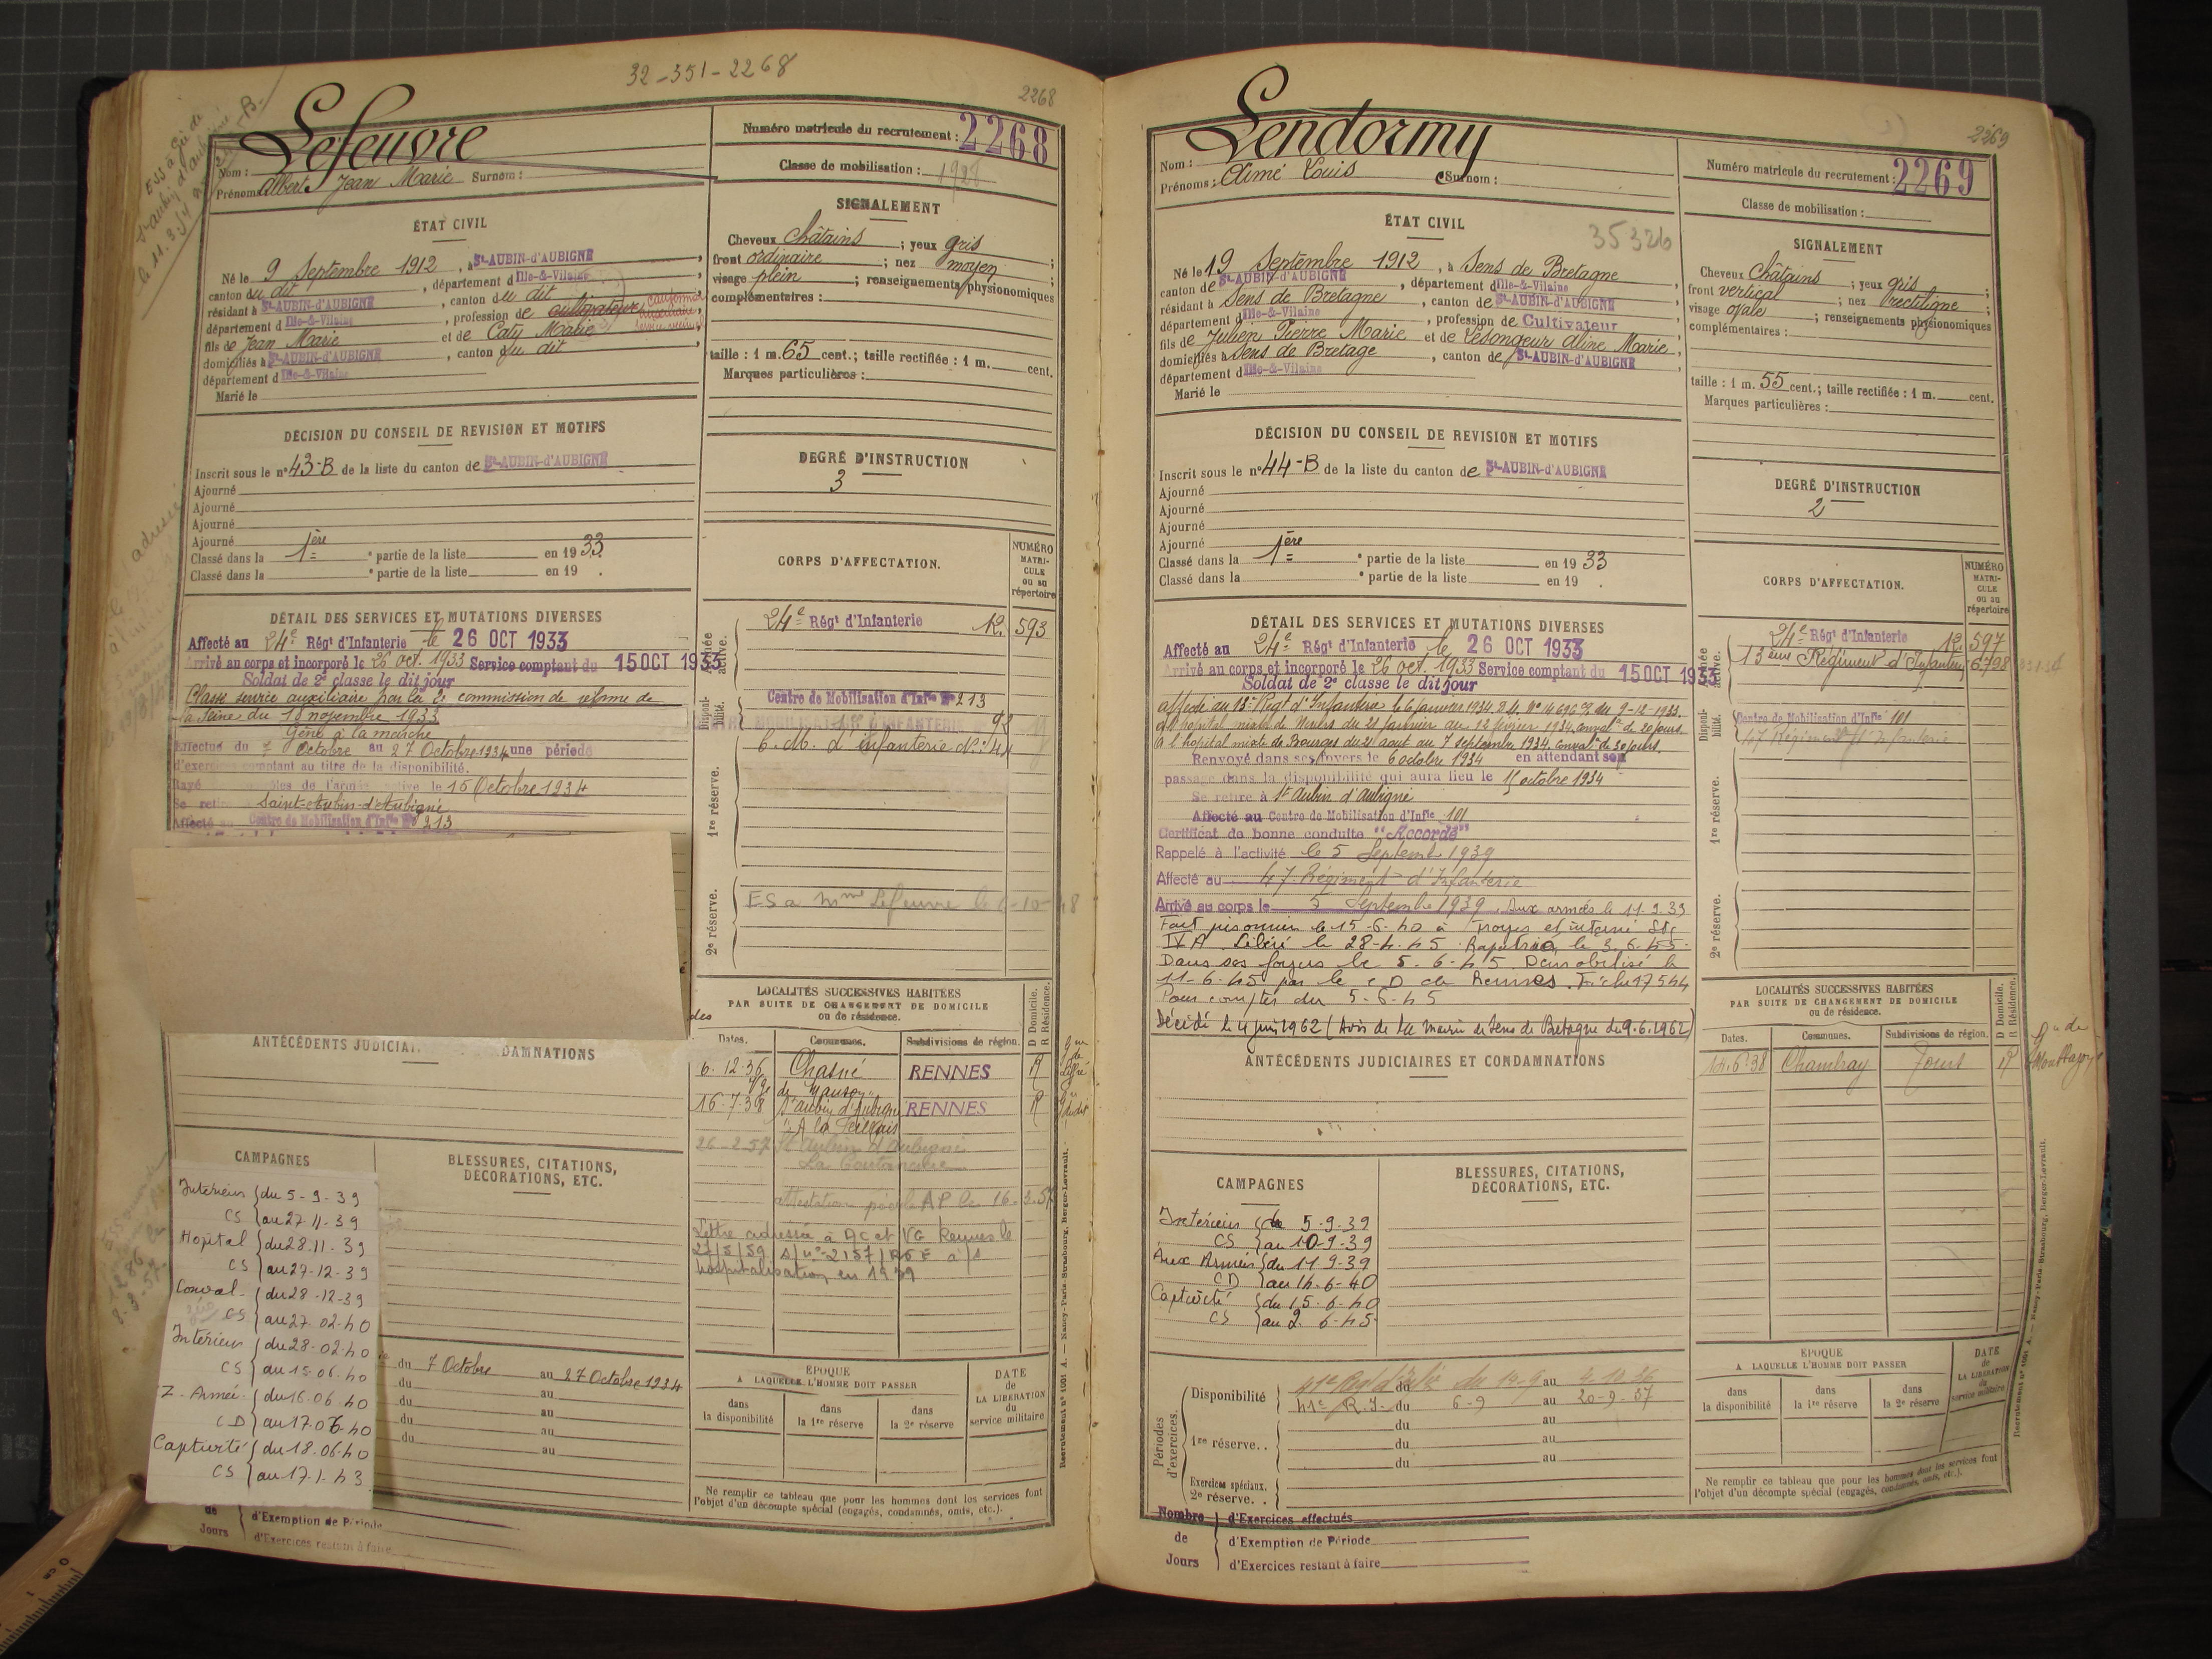 32-351-2268
2268
Lefeuvre
Nom :
Prénoms : Albert Jean Marie Surnom :
Numéro matricule du recrutement : 2268
Classe de mobilisation : 1928
ÉTAT CIVIL
Né le 9 Septembre 1912, à St-AUBIN-d'AUBIGNÉ,
canton du dit, département d'Ille-&-Vilaine,
résidant à St-AUBIN-d'AUBIGNÉ, canton du dit,
département d'Ille-&-Vilaine, profession de cultivateur cantonnier auxiliaire
fils de Jean Marie et de Caty Marie
domiciliés à St-AUBIN-d'AUBIGNÉ, canton du dit
département d'Ille-&-Vilaine
Marié le
SIGNALEMENT
Cheveux châtains ; yeux gris ;
front ordinaire ; nez moyen ;
visage plein ; renseignements physionomiques
complémentaires :
taille : 1 m. 65 cent.; taille rectifiée : 1 m. cent.
Marques particulières :
DÉCISION DU CONSEIL DE REVISION ET MOTIFS
Inscrit sous le n° 43-B de la liste du canton de St-AUBIN-d'AUBIGNÉ
Ajourné
Ajourné
Ajourné
Ajourné
Classé dans la 1ère e partie de la liste en 1933
Classé dans la e partie de la liste en 19 .
DEGRÉ D'INSTRUCTION
3
DÉTAIL DES SERVICES ET MUTATIONS DIVERSES
Affecté au 24e Régt d'Infanterie le 26 OCT 1933
Arrivé au corps et incorporé le 26 oct. 1933 Service comptant du 15 OCT 1933
Soldat de 2e classe le dit jour
Classé service auxiliaire par la 2e commission de réforme de
la Seine du 18 novembre 1933
Gêne à la marche
Effectué du 7 Octobre au 27 Octobre 1934 une période
d'exercices comptant au titre de la disponibilité.
Rayé des contrôles de l'armée active le 15 Octobre 1934
Se retire Saint-Aubin-d'Aubigné
Affecté au Centre de Mobilisation d'Infie N° 213
CORPS D'AFFECTATION.
NUMÉRO MATRI-CULE ou au répertoire
Armée active.
24e Régt d'Infanterie 12. 593
Disponi-bilité.
Centre de Mobilisation d'Infie N° 213
C. M. d'infanterie N° 41
1re réserve.
2e réserve.
ES a Mme Lefeuvre le 6-10-48
LOCALITÉS SUCCESSIVES HABITÉES
PAR SUITE DE CHANGEMENT DE DOMICILE
ou de résidence.
Dates. Communes. Subdivisions de région. D Domicile. R Résidence.
6.12.36 Chasné RENNES R
16-7-38 St aubin d'Aubigné RENNES R
26-2-57 St Aubin d'Aubigné
attestation AP le 16-3-57
Lettre adressée à AC et VG Rennes le
27/5/59 s/ n° 2157/ à/s
hospitalisation en 1939
ANTÉCÉDENTS JUDICIAI DAMNATIONS
CAMPAGNES
Intérieur du 5-9-39
CS au 27-11-39
Hopital du 28-11-39
CS au 27-12-39
Conval. du 28-12-39
CS au 27-02-40
Intérieur du 28-02-40
CS au 15-06-40
Z. Armée. du 16-06-40
CD au 17-06-40
Captivité du 18-06-40
CS au 17-1-43
BLESSURES, CITATIONS,
DÉCORATIONS, ETC.
du 7 Octobre au 27 Octobre 1934
du au
du au
du au
du au
de d'Exemption de Période
Jours d'Exercices restant à faire
ÉPOQUE
A LAQUELLE L'HOMME DOIT PASSER
dans la disponibilité dans la 1re réserve dans la 2e réserve
DATE de LA LIBÉRATION du service militaire
Ne remplir ce tableau que pour les hommes dont les services font
l'objet d'un décompte spécial (engagés, condamnés, omis, etc.).
Recrutement n° 1001 A. — Nancy-Paris-Strasbourg, Berger-Levrault.
2269
Lendormy
Nom :
Prénoms : Aimé Louis Surnom :
Numéro matricule du recrutement : 2269
Classe de mobilisation :
ÉTAT CIVIL
35326
Né le 19 Septembre 1912, à Sens de Bretagne
canton de St-AUBIN-d'AUBIGNÉ, département d'Ille-&-Vilaine,
résidant à Sens de Bretagne, canton de St-AUBIN-d'AUBIGNÉ
département d'Ille-&-Vilaine, profession de Cultivateur
fils de Julien Pierre Marie et de Lesongeur Aline Marie
domiciliés à Sens de Bretage, canton de St-AUBIN-d'AUBIGNÉ
département d'Ille-&-Vilaine
Marié le
SIGNALEMENT
Cheveux châtains ; yeux gris ;
front vertical ; nez rectiligne ;
visage ovale ; renseignements physionomiques
complémentaires :
taille : 1 m. 55 cent.; taille rectifiée : 1 m. cent.
Marques particulières :
DÉCISION DU CONSEIL DE REVISION ET MOTIFS
Inscrit sous le n° 44-B de la liste du canton de St-AUBIN-d'AUBIGNÉ
Ajourné
Ajourné
Ajourné
Ajourné
Classé dans la 1ère e partie de la liste en 1933
Classé dans la e partie de la liste en 19 .
DEGRÉ D'INSTRUCTION
2
DÉTAIL DES SERVICES ET MUTATIONS DIVERSES
Affecté au 24e Régt d'Infanterie le 26 OCT 1933
Arrivé au corps et incorporé le 26 oct. 1933 Service comptant du 15 OCT 1933
Soldat de 2e classe le dit jour
affecté au 13e Régt d'Infanterie le 6 janvier 1934. du 9-12-1933.
à l'hôpital mixte de Nevers du 21 Janvier au 12 février 1934. conval. de 20 jours.
à l'hôpital mixte de Bourges du 21 aout au 7 septembre 1934. conval. de 30 jours.
Renvoyé dans ses foyers le 6 octobre 1934 en attendant son
passage dans la disponibilité qui aura lieu le 15 octobre 1934
Se retire à St Aubin d'Aubigné
Affecté au Centre de Mobilisation d'Infie 101
Certificat de bonne conduite "Accordé"
Rappelé à l'activité le 5 Septembre 1939
Affecté au 47 Régiment d'Infanterie
Arrivé au corps le 5 Septembre 1939. Aux armées le 11.9.39
Fait prisonnier le 15-6-40 à Troyes et interné Stg
IV A Libéré le 28-4-45 Rapatrié le 3.6.45.
Dans ses foyers le 5-6-45 Démobilisé le
11-6-45 par le CD de Rennes. Fiche 17544
Pour compter du 5-6-45
Décédé le 4 juin 1962 (Avis de la Mairie de Sens de Bretagne du 9.6.1962)
CORPS D'AFFECTATION.
NUMÉRO MATRI-CULE ou au répertoire
Armée active.
24e Régt d'Infanterie 12 597
13ème Régiment d'Infanterie 6798
Disponi-bilité.
Centre de Mobilisation d'Infie 101
47 Régiment d'Infanterie
1re réserve.
2e réserve.
LOCALITÉS SUCCESSIVES HABITÉES
PAR SUITE DE CHANGEMENT DE DOMICILE
ou de résidence.
Dates. Communes. Subdivisions de région. D Domicile. R Résidence.
14.6.38 Chambray Tours R
ANTÉCÉDENTS JUDICIAIRES ET CONDAMNATIONS
CAMPAGNES
Intérieur du 5-9-39
CS au 10-9-39
Aux Armées du 11-9-39
CD au 14-6-40
Captivité du 15-6-40
CS au 2-6-45
BLESSURES, CITATIONS,
DÉCORATIONS, ETC.
Périodes d'exercices.
Disponibilité 41e du 14-9 au 4.10.36
41e R.I. du 6-9 au 20-9-37
du au
1re réserve. . du au
du au
Exercices spéciaux.
2e réserve. .
Nombre d'Exercices effectués
de d'Exemption de Période
Jours d'Exercices restant à faire
ÉPOQUE
A LAQUELLE L'HOMME DOIT PASSER
dans la disponibilité dans la 1re réserve dans la 2e réserve
DATE de LA LIBÉRATION du service militaire
Ne remplir ce tableau que pour les hommes dont les services font
l'objet d'un décompte spécial (engagés, condamnés, omis, etc.).
Recrutement n° 1001 A. — Nancy-Paris-Strasbourg, Berger-Levrault.